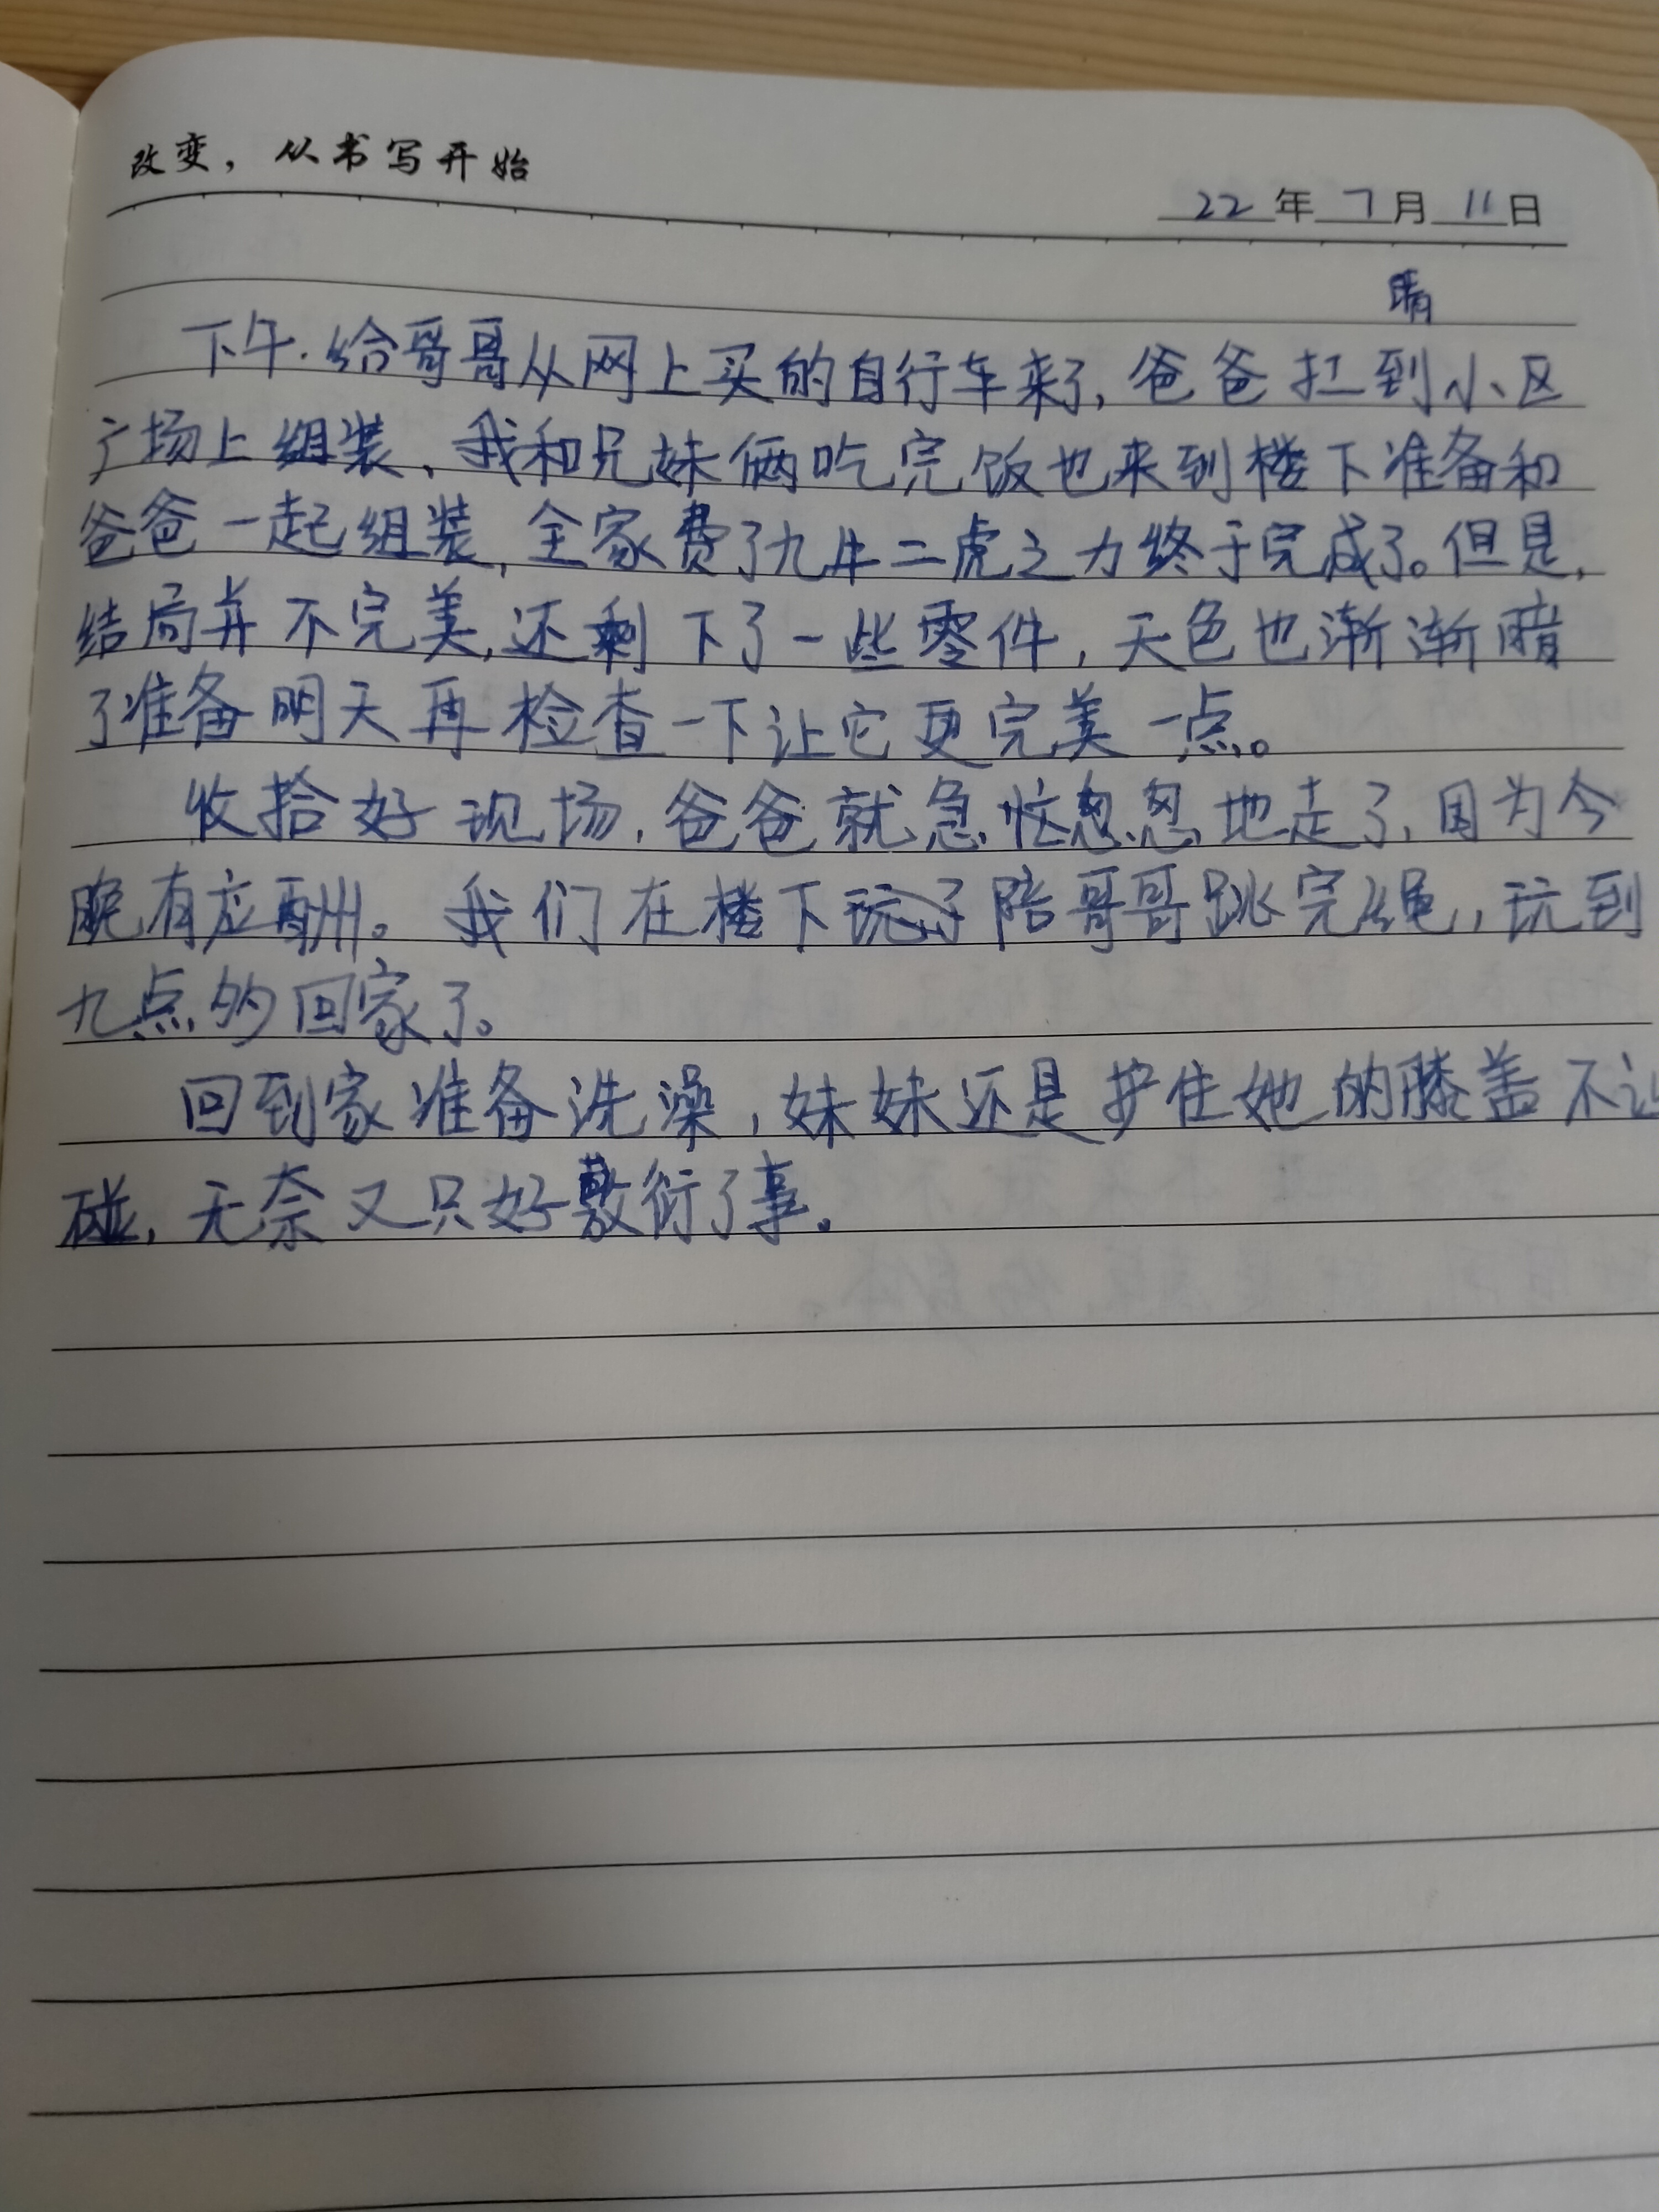 改变，从书写开始
22年7月11日
晴
下午.给哥哥从网上买的自行车来了,爸爸扛到小区
广场上组装、我和兄妹俩吃完饭也来到楼下准备和
爸爸一起组装,全家费了九牛二虎之力终于完成了。但是,
结局并不完美,还剩下了一些零件,天色也渐渐暗
了准备明天再检查一下让它更完美一点。
收拾好现场,爸爸就急忙忽忽地走了,因为今
晚有应酬。我们在楼下玩了陪哥哥跳完绳,玩到
九点的回家了。
回到家准备洗澡,妹妹还是护住她的膝盖不让
碰,无奈又只好敷衍了事。